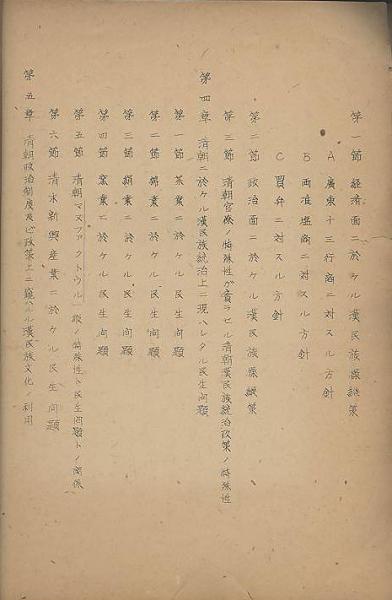 第一節 経済面ニ於ケル漢民族懐緻策
A 廣東十三行商ニ対スル方針
B 両淮塩商ニ対スル方針
C 買弁ニ対スル方針
第二節 政治面ニ於ケル漢民族懐緻策
第三節 清朝官僚ノ特殊性ガ齎ラセル清朝漢民族統治政策ノ特殊性
第四章 清朝ニ於ケル漢民族統治上ニ現ハレタル民生問題
第一節 茶業ニ於ケル民生問題
第二節 ニ於ケル民生問題
第三節 ニ於ケル民生問題
第四節 窯業ニ於ケル民生問題
第五節 清朝マヌファクトウル一般ノ特殊性ト民生問題トノ関係
第六節 清末新興産業ニ於ケル民生問題
第五章 清朝政治制度及ビ政策上ニ窺ハルル漢民族文化ノ利用